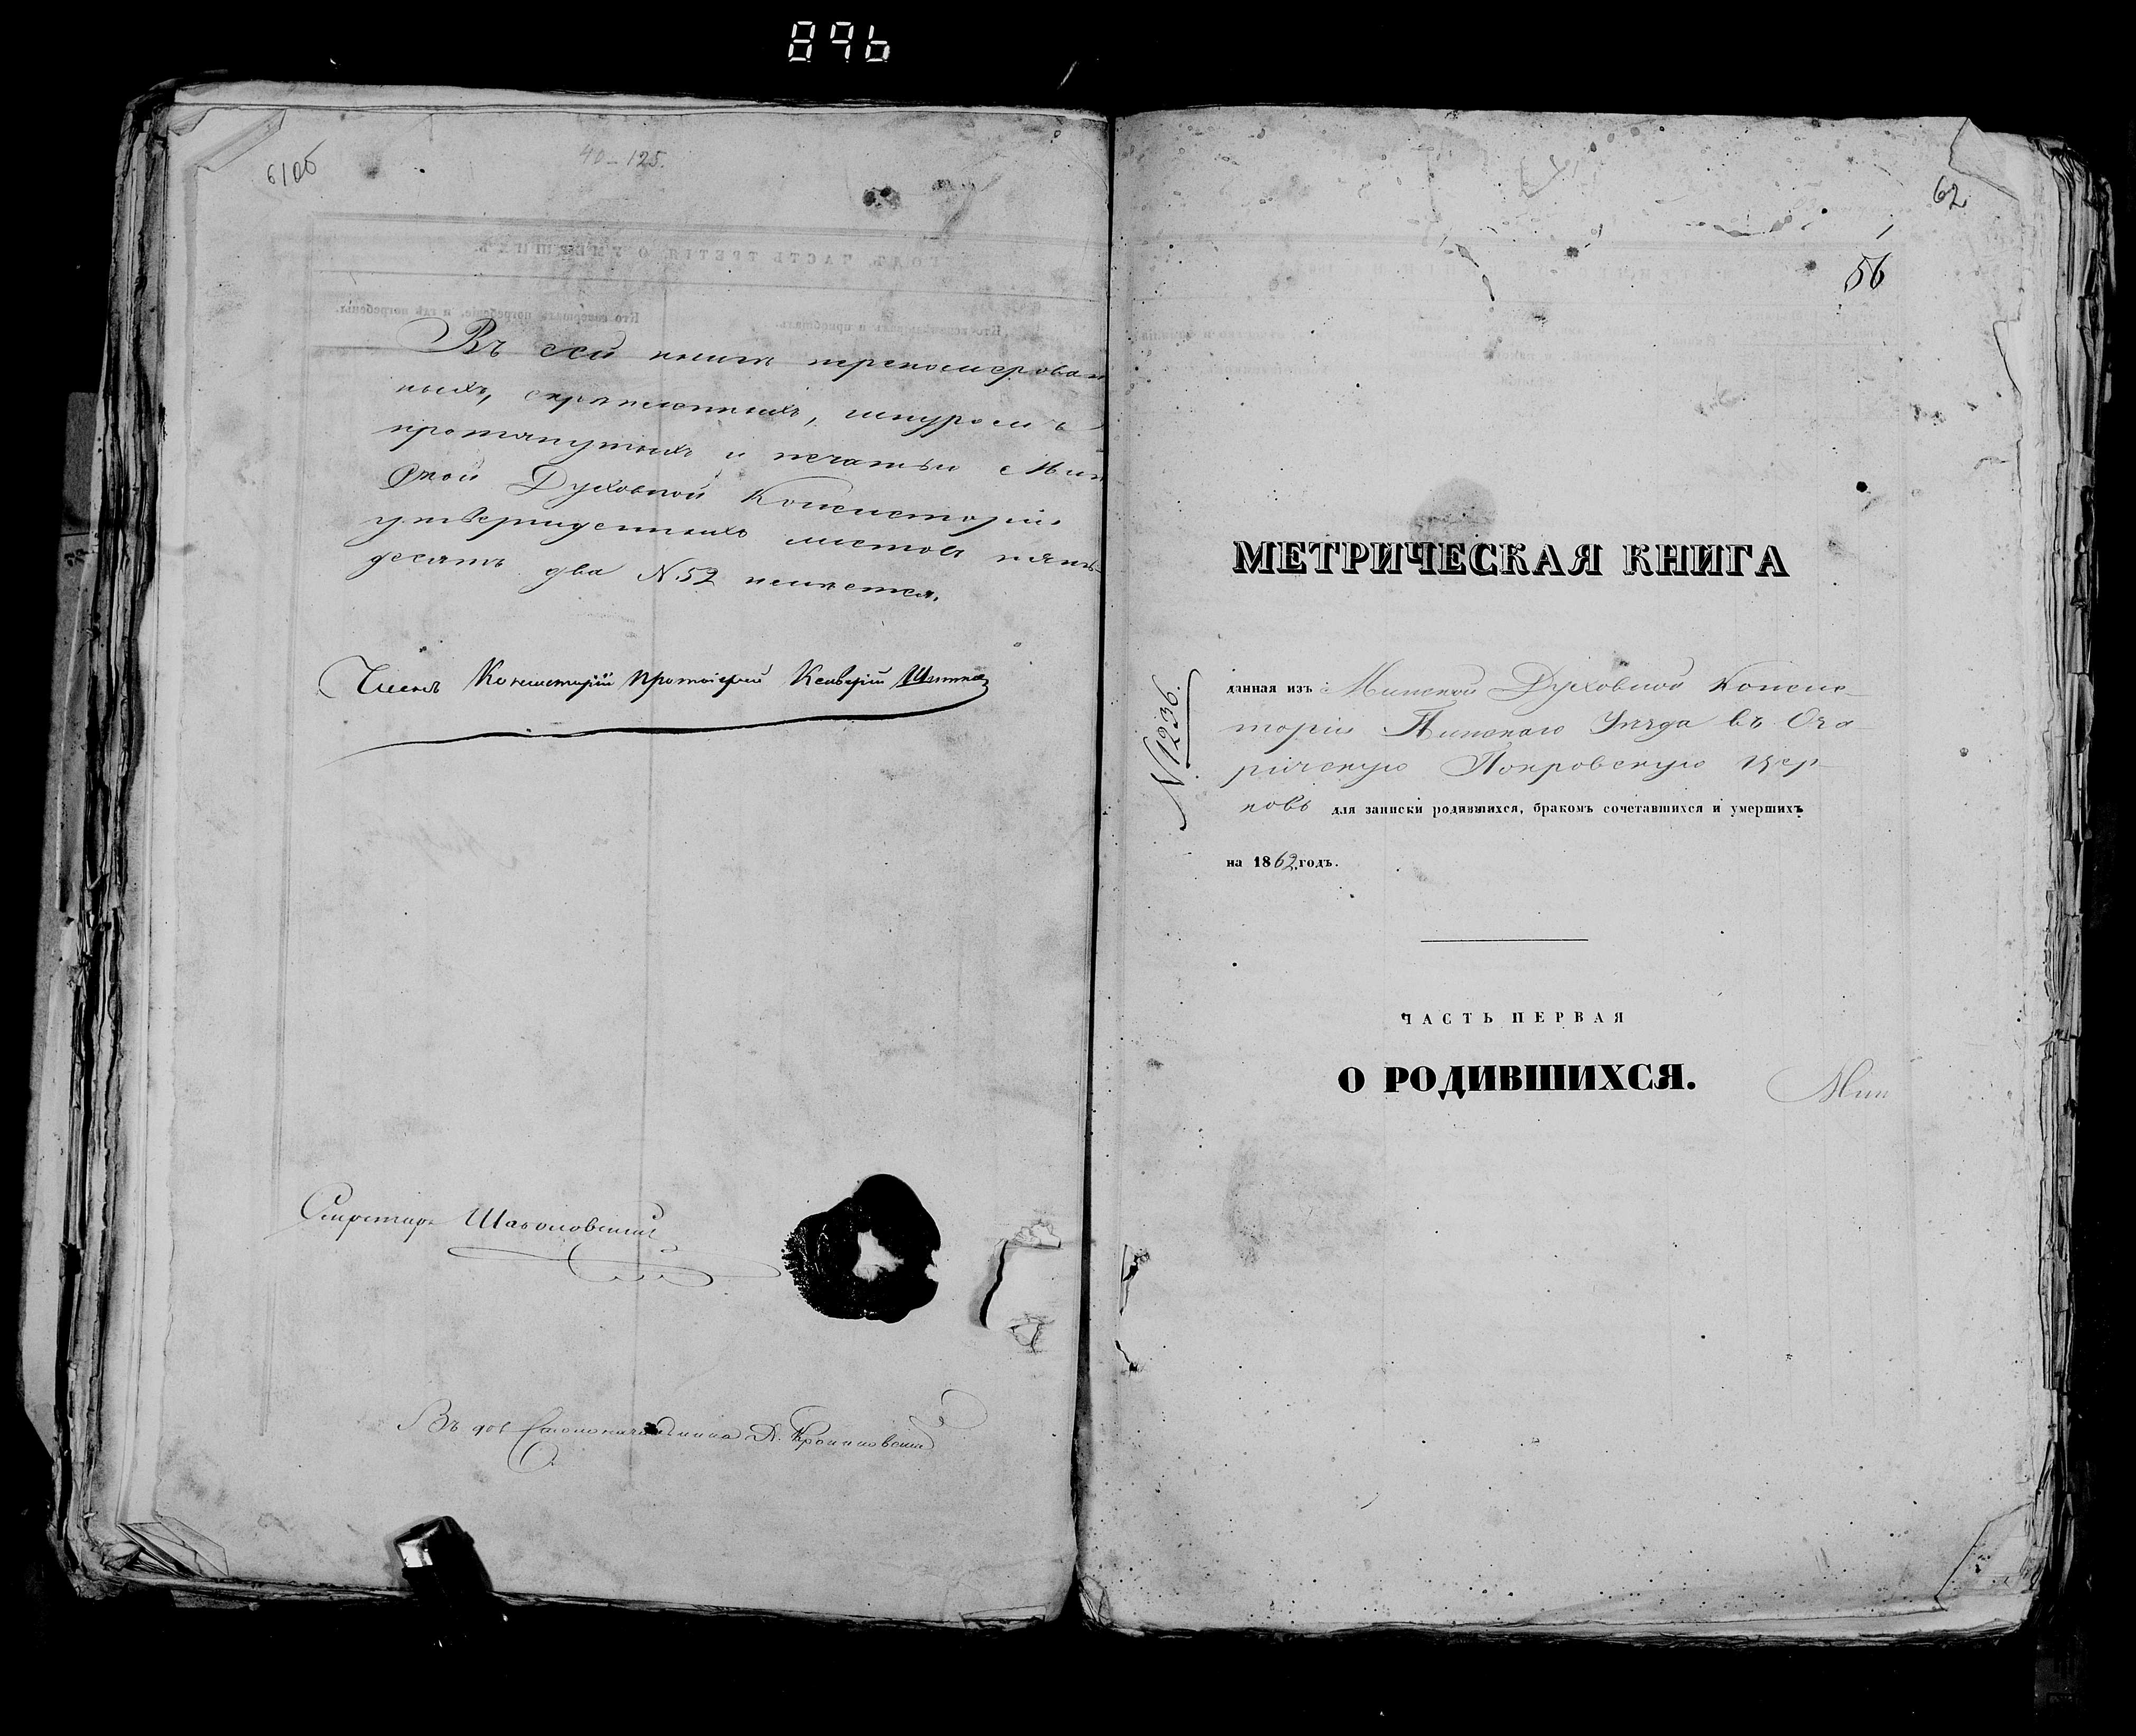 896
61об
40–125.
Въ сей книгѣ перенумерован
ныхъ, скрѣпленныхъ, шнуромъ
протянутыхъ и печатью Мин
ской Духовной Консисторіи
утвержденныхъ листовъ пять-
десятъ два N. 52 имѣется.
Членъ Консисторіи Протоіерей Ксаверій
Секретарь
62
1
56
МЕТРИЧЕСКАЯ КНИГА
N 1236.
данная изъ Минской Духовной Консис-
торіи Пинскаго Уѣзда въ Ога
ричскую Покровскую Цер-
ковь для записки родившихся, бракомъ сочетавшихся и умершихъ
на 1862 годъ.
ЧАСТЬ ПЕРВАЯ
О РОДИВШИХСЯ.
Мин